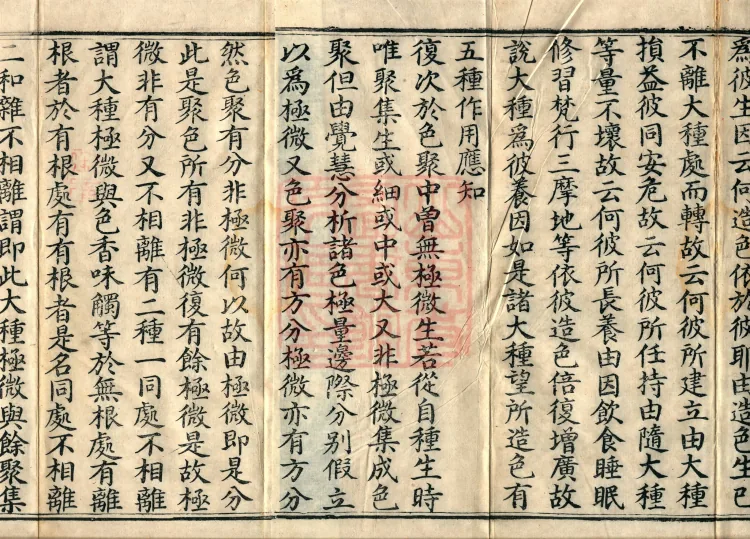 爲彼生因云何造色依於彼耶由造色生已
不離大種處而轉故云何彼所建立由大種
損益彼同安危故云何彼所任持由隨大種
等量不壞故云何彼所長養由因飲食睡眠
修習梵行三摩地等依彼造色倍復增廣故
說大種爲彼養因如是諸大種望所造色有
五種作用應知
復次於色聚中曾無極微生若從自種生時
唯聚集生或細或中或大又非極微集成色
聚但由覺慧分析諸色極量邊際分別假立
以爲極微又色聚亦有方分極微亦有方分
然色聚有分非極微何以故由極微即是分
此是聚色所有非極微復有餘極微是故極
微非有分又不相離有二種一同處不相離
謂大種極微與色香味觸等於無根處有離
根者於有根處有有根者是名同處不相離
二和雜不相離謂即此大種極微與餘聚集